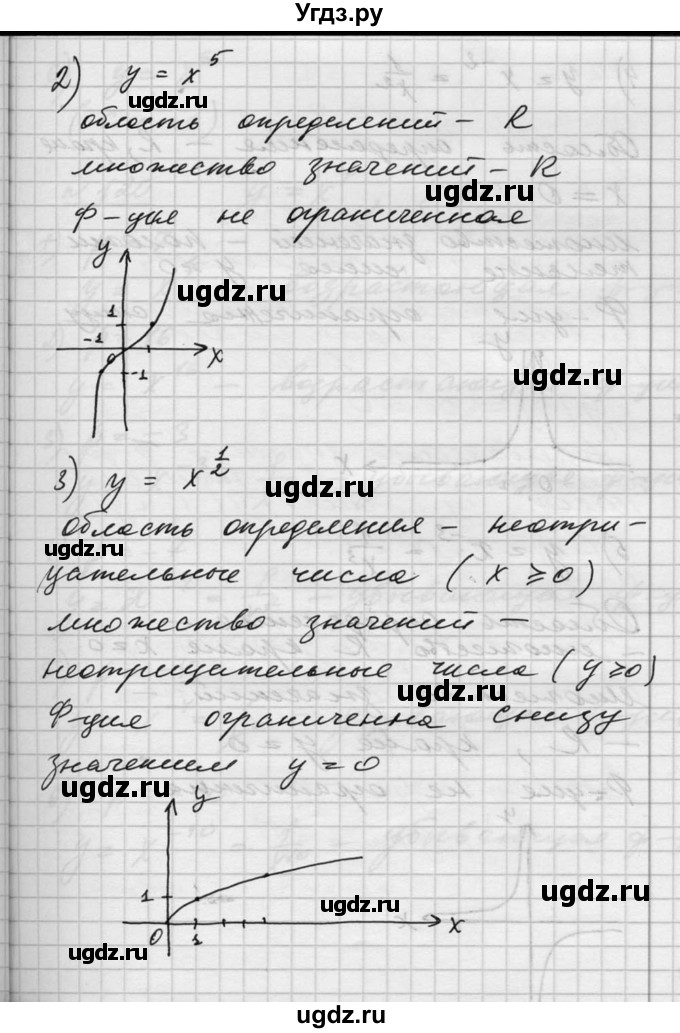 Угдз.ру
2) y = x^5
область определений – R
множество значений – R
Ф-ция не ограниченная
y
1
-1 0 x
-1
3) y = x^{1/2}
область определения – неотри-
цательные числа (x ≥ 0)
множество значений –
неотрицательные числа (y ≥ 0)
Ф-ция ограниченна снизу
значением y = 0
y
1
0 1 x
ugdz.ru
ugdz.ru
ugdz.ru
ugdz.ru
ugdz.ru
ugdz.ru
ugdz.ru
ugdz.ru
ugdz.ru
ugdz.ru
ugdz.ru
ugdz.ru